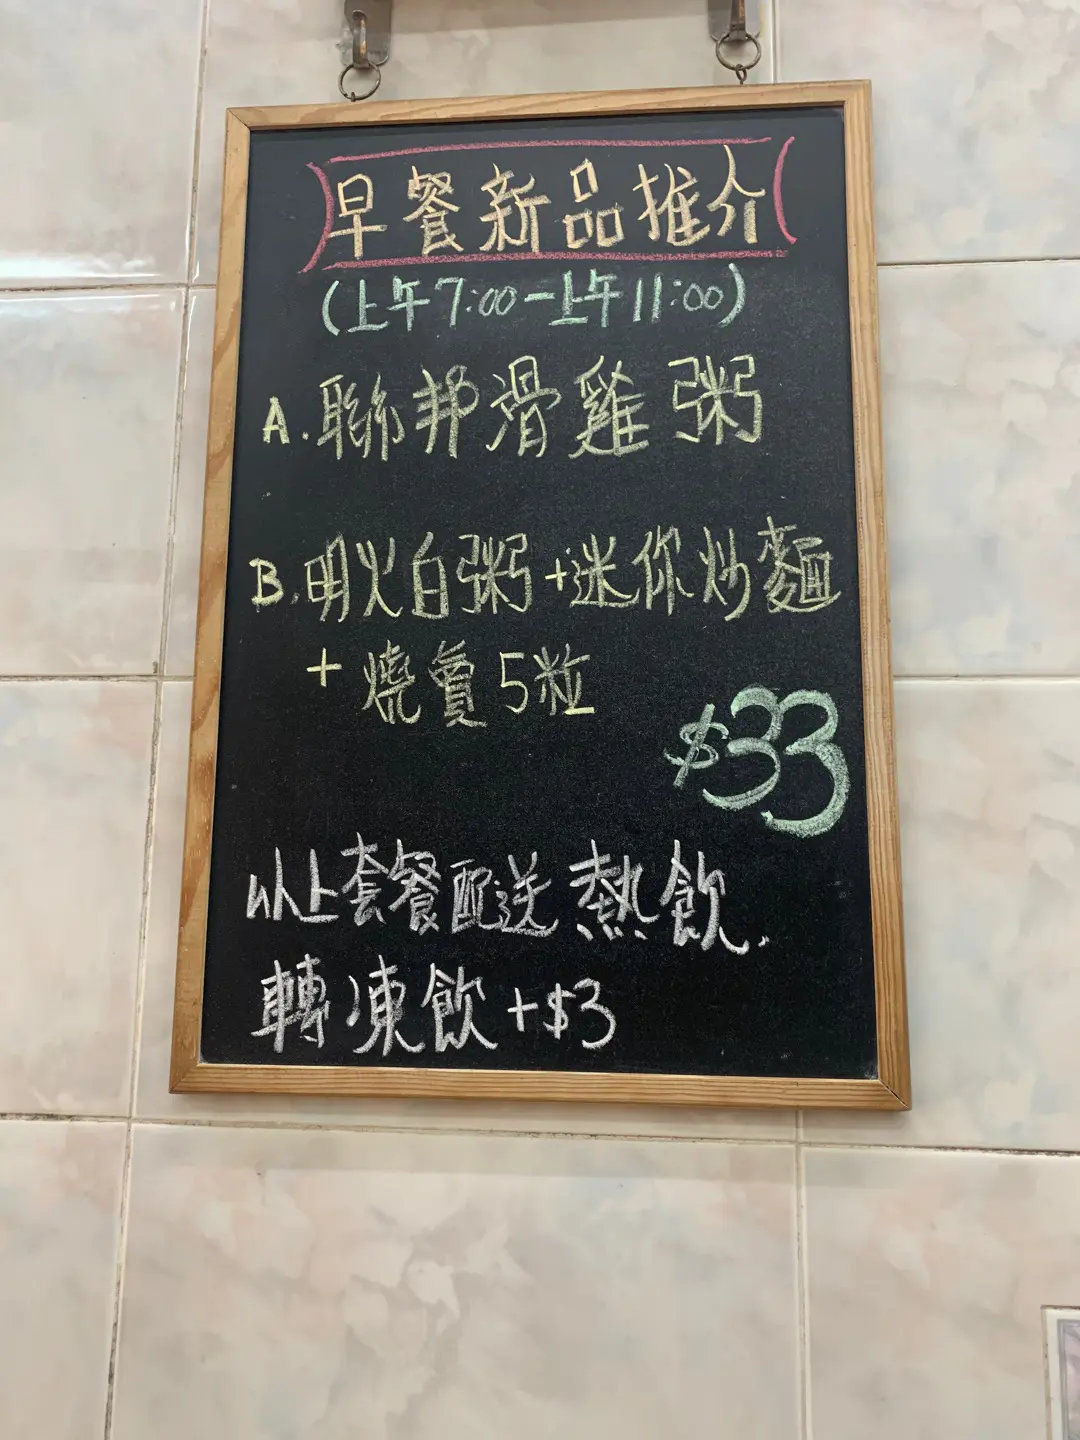 早餐新品推介
(上午7:00-上午11:00)
A.聯邦滑雞粥
B.明火白粥+迷你炒麵
+燒賣5粒
$33
以上套餐配送熱飲.
轉凍飲+$3